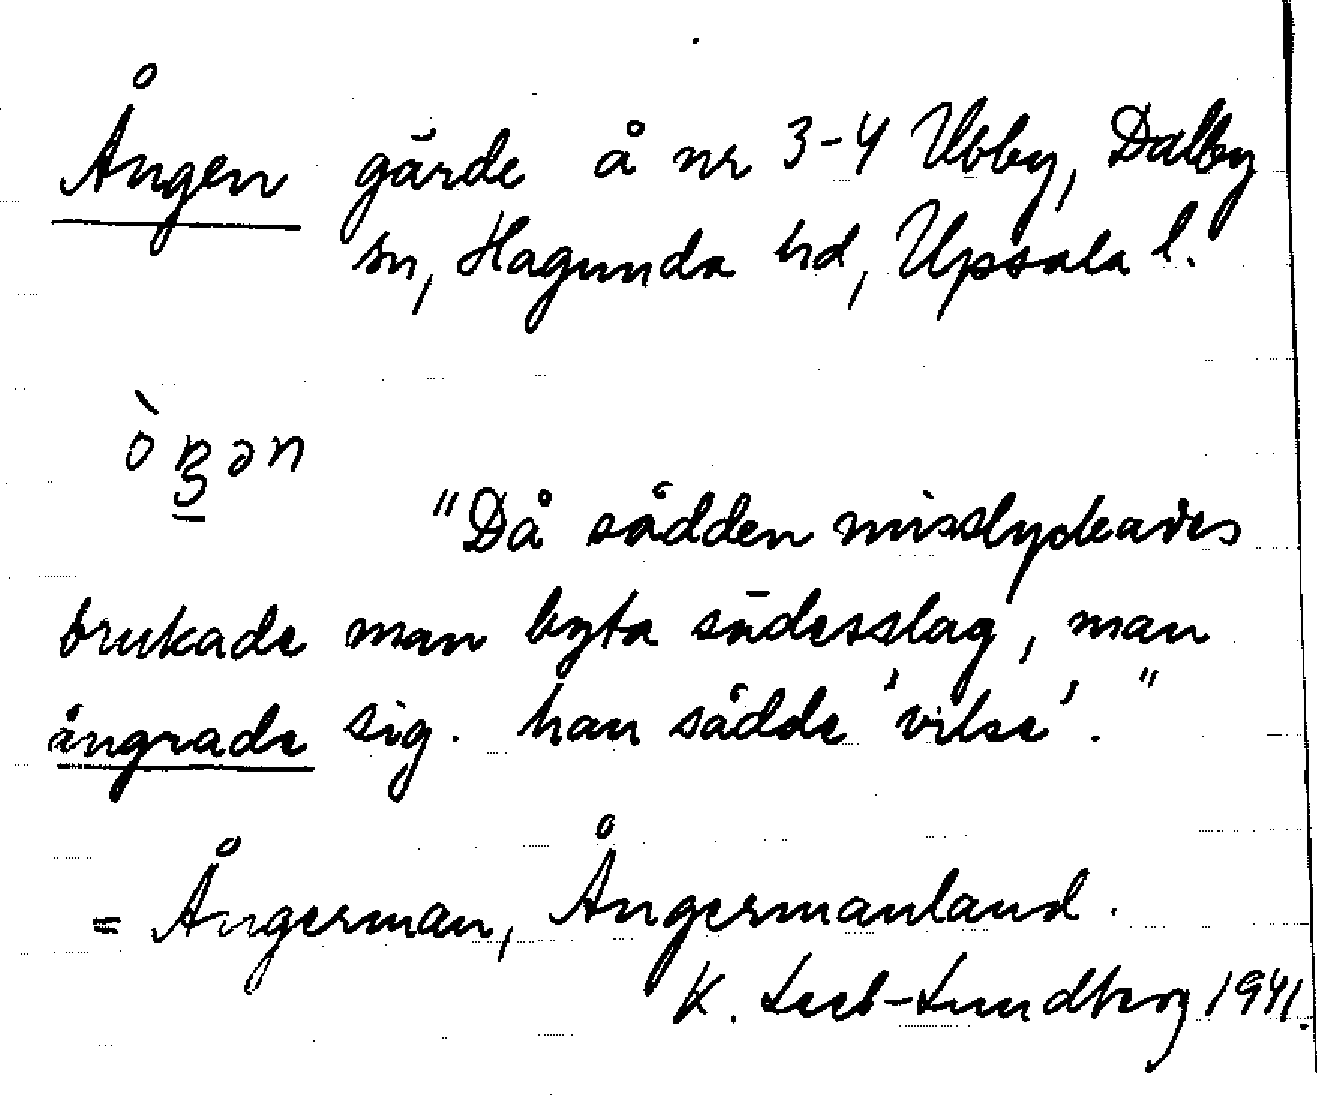 Ången gärde å nr 3-4 Ubby, Dalby
sn, Hagunda hd, Upsala l.
"Då sådden misslyckades
brukade man byta sädesslag, man
ångrade sig. han sådde 'vilse'."
= Ångerman, Ångermanland.
K. Leeb-Lundberg 1941.